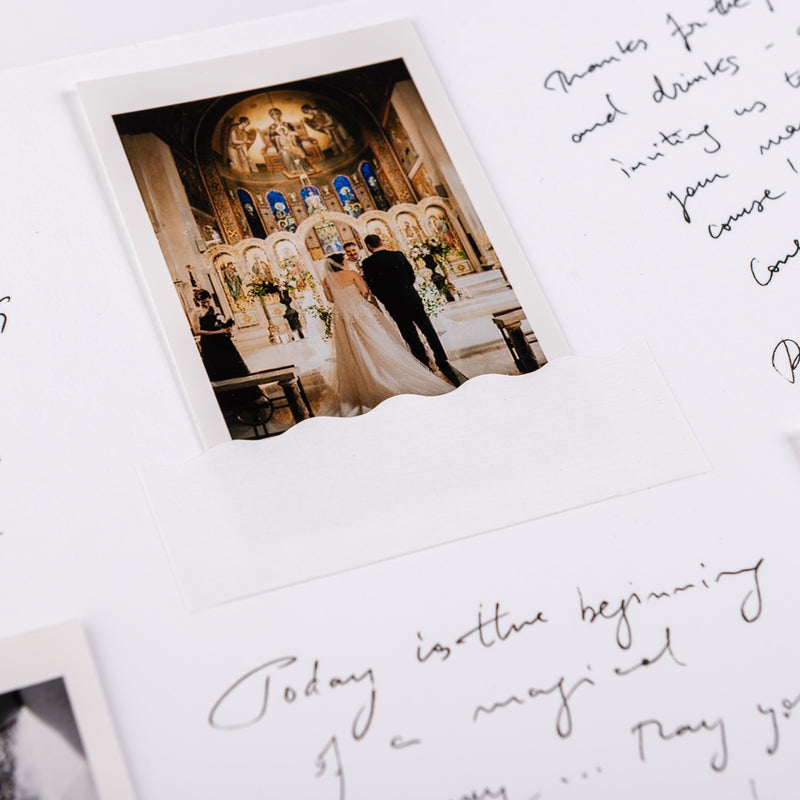 Thanks for the
and drinks -
inviting us to
your
course!
Today is the beginning
of a magical
... May you